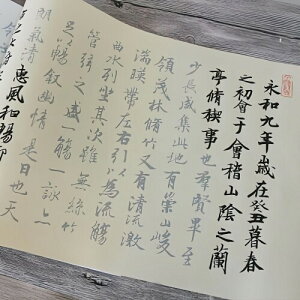 永和九年歲在癸丑暮春
之初會于會稽山陰之蘭
亭脩禊事也群賢畢至
少長咸集此地有崇山峻
領茂林脩竹又有清流激
湍暎帶左右引以為流觴
曲水列坐其次雖無絲竹
管弦之盛一觴一詠亦
足以暢敘幽情是日也天
朗氣清惠風和暢仰